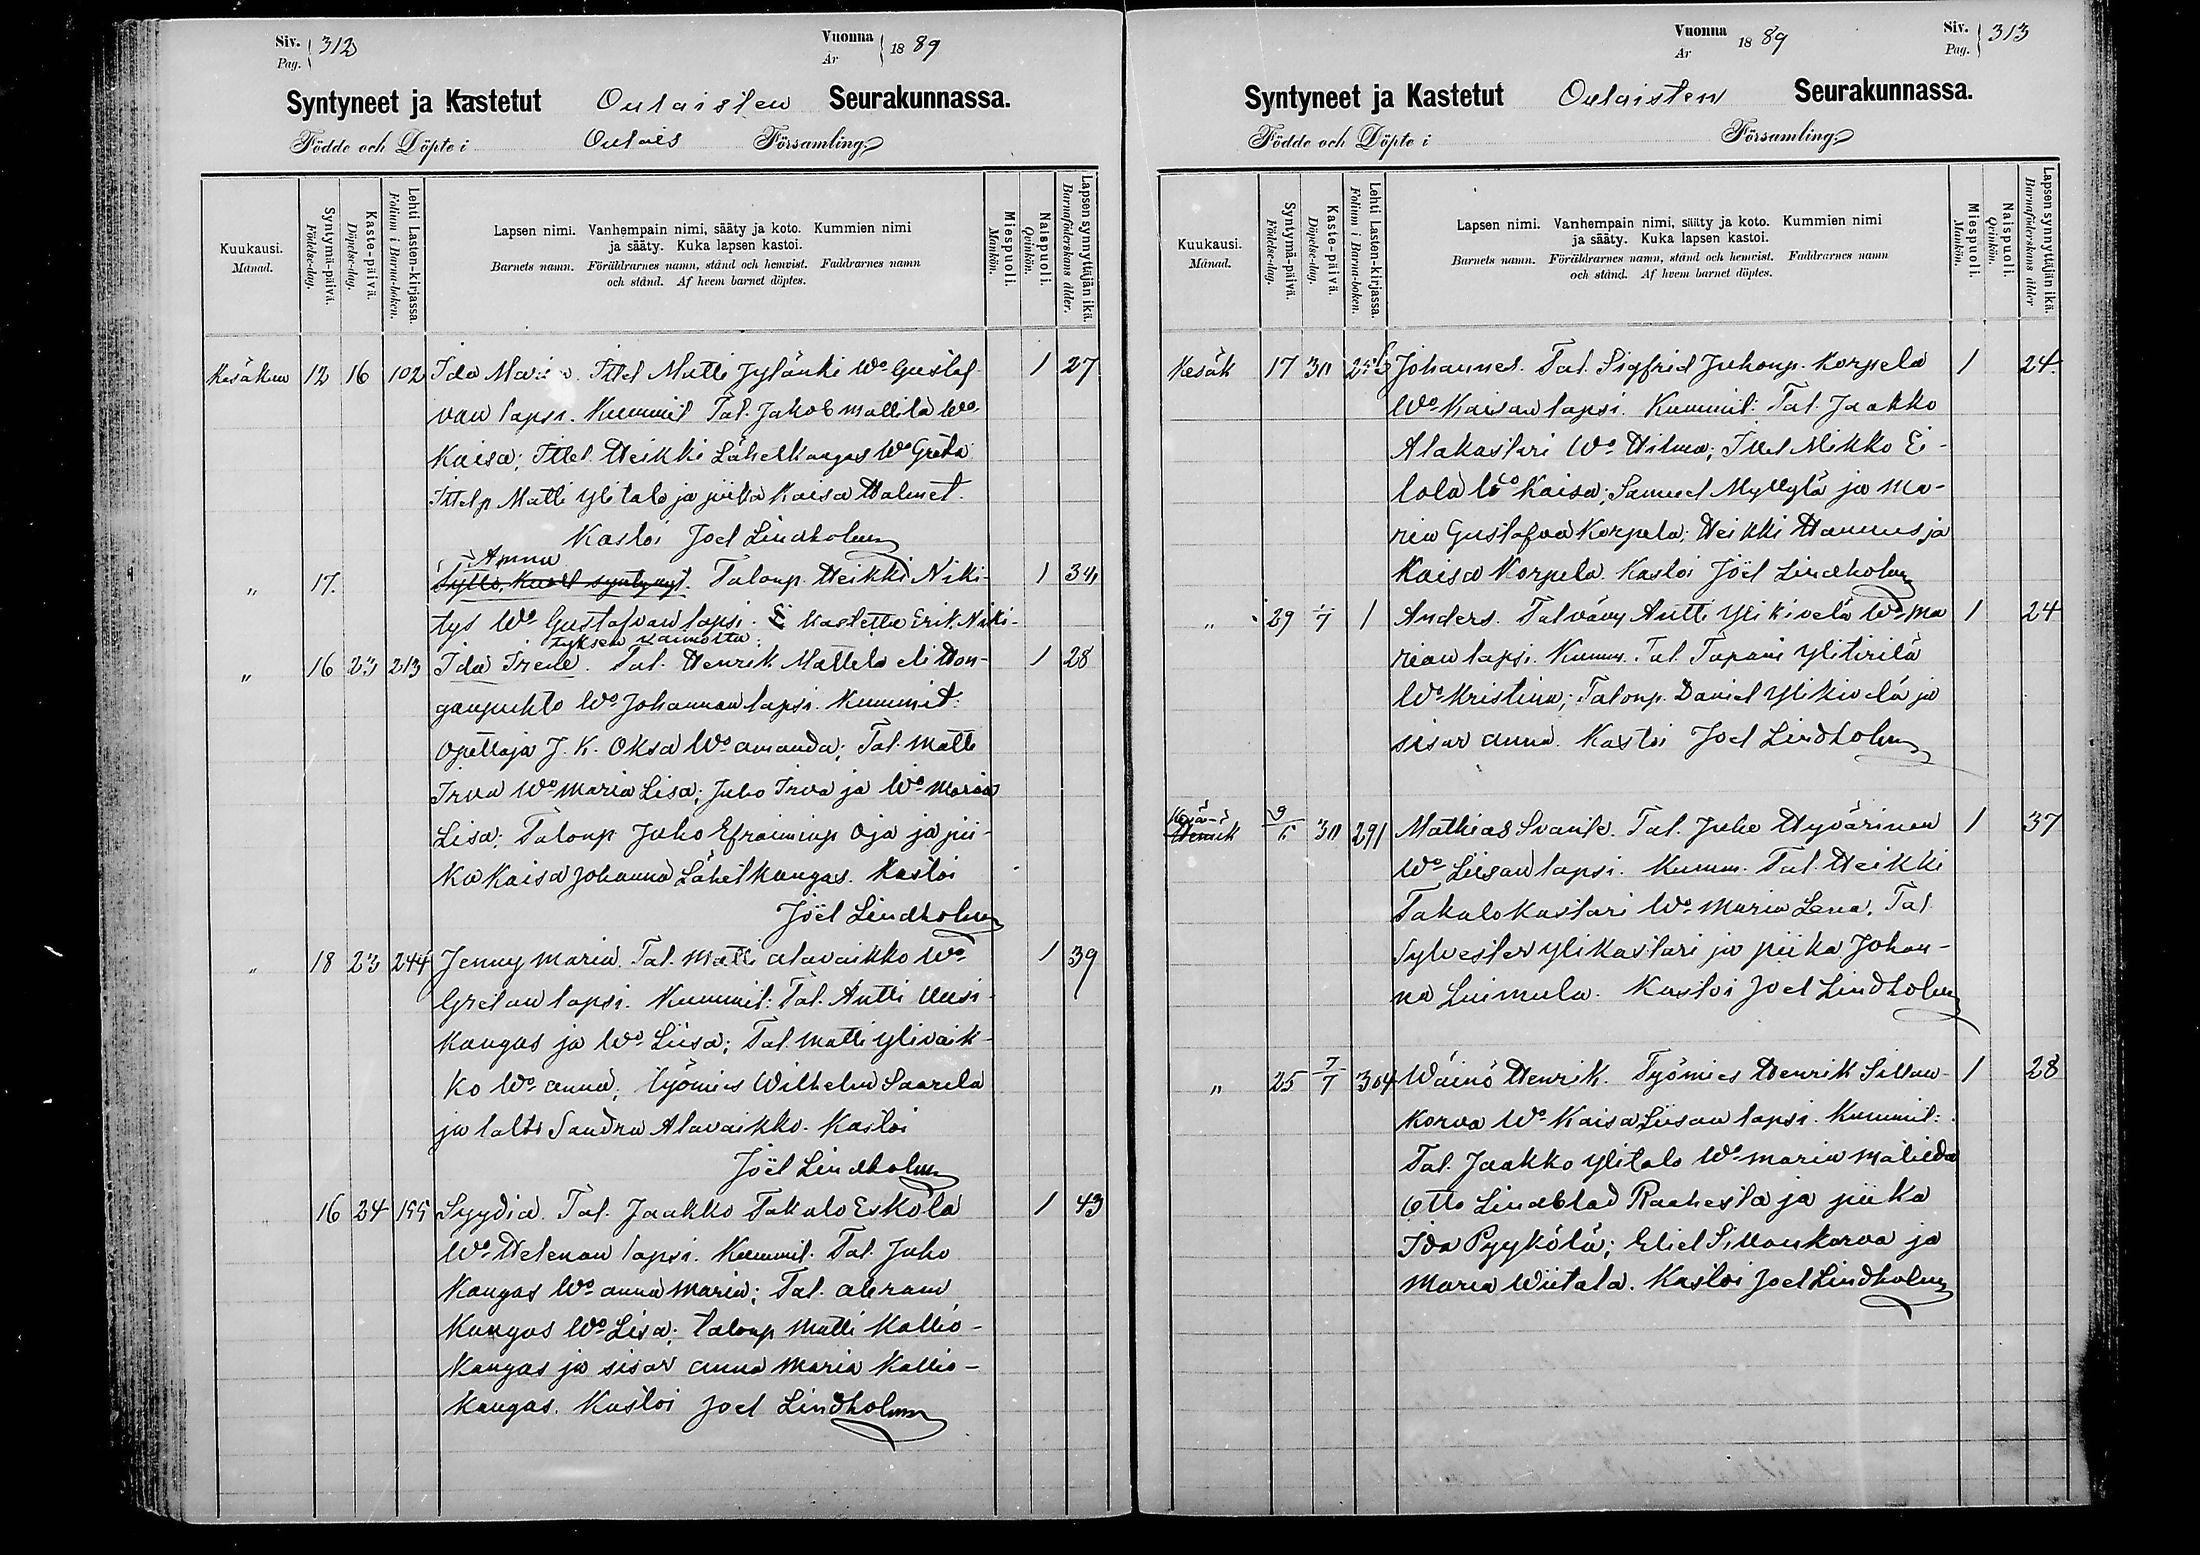 Siv. Pag. 312
Vuonna År 1889
Syntyneet ja Kastetut Oulaisten Seurakunnassa.
Födde och Döpte i Oulais Församling
Kuukausi. Månad.
Syntymä-päivä. Födelse-dag.
Kaste-päivä. Döpelse-dag.
Lehti Lasten-kirjassa. Folium i Barna-boken.
Lapsen nimi. Vanhempain nimi, sääty ja koto. Kummien nimi
ja sääty. Kuka lapsen kastoi.
Barnets namn. Föräldrarnes namn, stånd och hemvist. Faddrarnes namn
och stånd. Af hvem barnet döptes.
Miespuoli. Mankön.
Naispuoli. Qvinkön.
Lapsen synnyttäjän ikä. Barnaföderskans ålder.
Kesäkuu 12 16 102 Ida Maria. Ittel Matti Jylänki Wo Gustaf- 1 27
van lapsi. Kummit Tal. Jakob Mattila Wo
Kaisa; Ittel. Heikki Lähetkangas Wo Greta
Ittelp Matti Ylitalo ja piika Kaisa Halmet.
Kastoi Joel Lindholm
Anna
" 17. Talonp. Heikki Niki- 1 34
tys Wo Gustafvan lapsi. Kastettu Erik Niki-
tyksen vaimolta.
" 16 23 213 Ida Irene. Tal. Henrik Mattila eli Hon- 1 28
ganpuhto Wo Johannan lapsi. Kummit:
Opettaja J. K. Oksa Wo Amanda; Tal. Matti
Irva Wo Maria Lisa; Juho Irva ja Wo Maria
Lisa; Talonp Juho Efraiminp Oja ja pii-
ka Kaisa Johanna Lähetkangas. Kastoi
Joël Lindholm
" 18 23 244 Jenny Maria. Tal. Matti Alavaikko Wo 1 39
Gretan lapsi. Kummit: Tal. Antti Uusi-
kangas ja Wo Liisa; Tal. Matti Ylivaik-
ko Wo Anna; Työmies Wilhelm Saarela
ja Sandra Alavaikko. Kastoi
Joël Lindholm
16 24 155 Lyydia. Tal. Jaakko Takalo Eskola 1 43
Wo Helenan lapsi. Kummit. Tal. Juho
Kangas Wo Anna Maria; Tal. Abram
Kangas Wo Lisa; talonp Matti Kallio-
kangas ja sisar Anna Maria Kallio-
kangas. Kastoi Joel Lindholm
Vuonna År 1889
Siv. Pag. 313
Syntyneet ja Kastetut Oulaisten Seurakunnassa.
Födde och Döpte i Församling
Kuukausi. Månad.
Syntymä-päivä. Födelse-dag.
Kaste-päivä. Döpelse-dag.
Lehti Lasten-kirjassa. Folium i Barna-boken.
Lapsen nimi. Vanhempain nimi, sääty ja koto. Kummien nimi
ja sääty. Kuka lapsen kastoi.
Barnets namn. Föräldrarnes namn, stånd och hemvist. Faddrarnes namn
och stånd. Af hvem barnet döptes.
Miespuoli. Mankön.
Naispuoli. Qvinkön.
Lapsen synnyttäjän ikä. Barnaföderskans ålder
Kesäk 17 30 Johannes. Tal. Sigfrid Juhonp. Korpela 1 24.
Wo Kaisan lapsi. Kummit: Tal. Jaakko
Alakastari Wo Hilma; Ittel Mikko Ei-
lola Wo Kaisa; Samuel Myllylä ja Ma-
ria Gustafva Korpela; Heikki Hannus ja
Kaisa Korpela. Kastoi Joël Lindholm
" 29 7 1 Anders. Talvävy Antti Ylikivelä Wo Ma 1 24
rian lapsi. Kumm. Tal. Tapani Ylitirilä
Wo Kristina; Talonp. Daniel Ylikivelä ja
sisar Anna. Kastoi Joel Lindholm
9/6 30 291 Mathias Svante. Tal. Juho Hyvärinen 1 37
Wo Liisan lapsi. Kumm. Tal. Heikki
Takalokastari Wo Maria Lena. Tal
Sylvester Ylikastari ja piika Johan-
na Luimula. Kastoi Joel Lindholm
" 25 7/7 304 Wäinö Henrik. Työmies Henrik Sillan- 1 28
korva Wo Kaisa Liisan lapsi. Kummit:
Tal. Jaakko Ylitalo Wo Maria Matilda
Otto Lindblad Raahesta ja piika
Ida Pyykölä; Eliel Sillankorva ja
Maria Wiitala. Kastoi Joel Lindholm